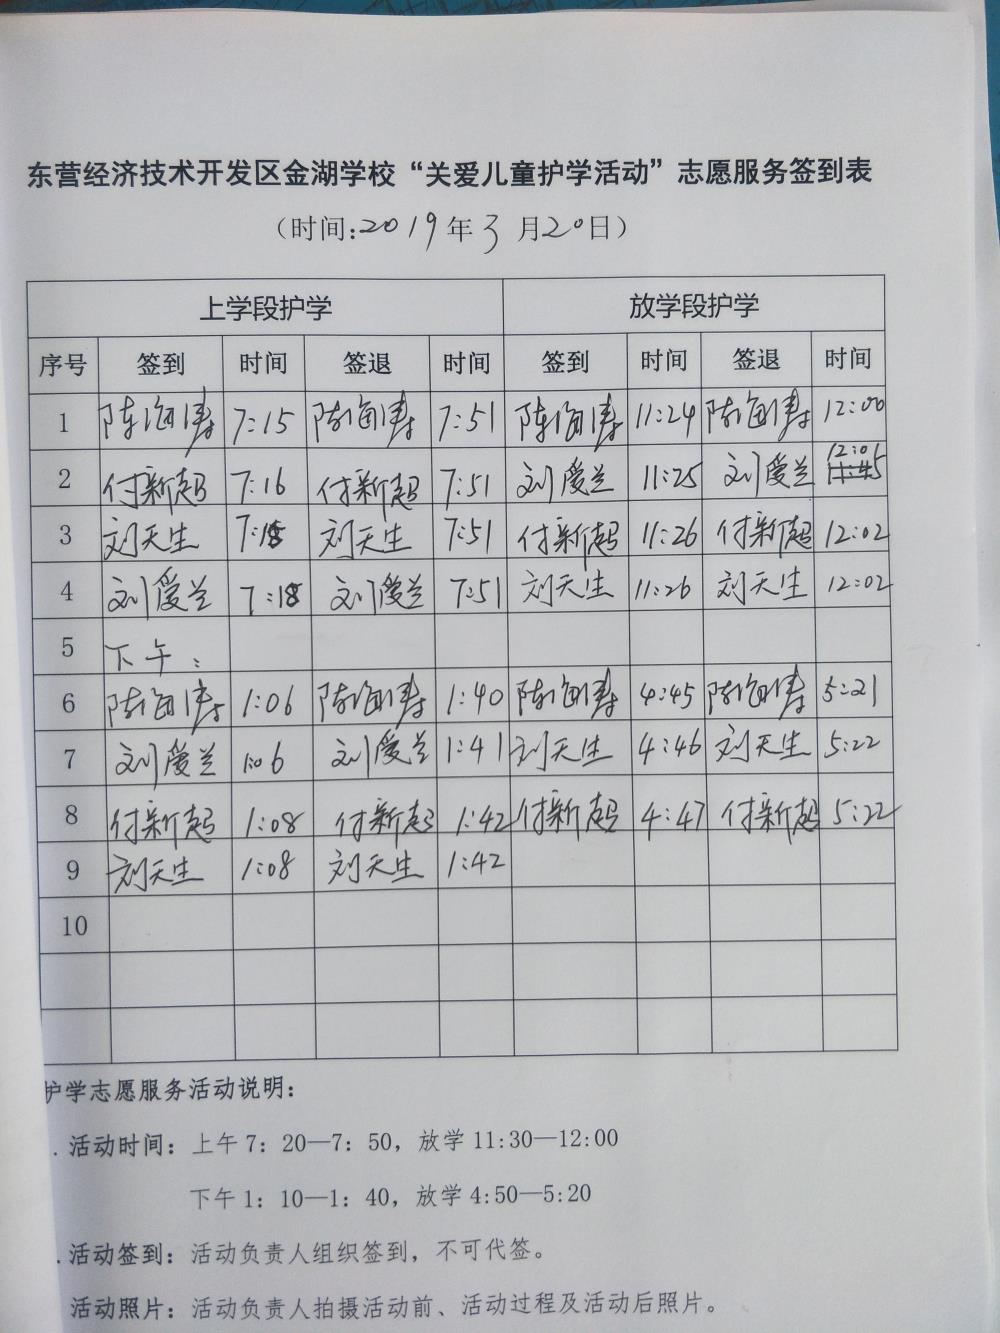 东营经济技术开发区金湖学校“关爱儿童护学活动”志愿服务签到表
（时间:2019年3月20日）
上学段护学 放学段护学
序号 签到 时间 签退 时间 签到 时间 签退 时间
1 陈海涛 7:15 陈海涛 7:51 陈海涛 11:24 陈海涛 12:00
2 付新超 7:16 付新超 7:51 刘爱兰 11:25 刘爱兰 12:01
3 刘天生 7:18 刘天生 7:51 付新超 11:26 付新超 12:02
4 刘爱兰 7:18 刘爱兰 7:51 刘天生 11:26 刘天生 12:02
5 下午：
6 陈海涛 1:06 陈海涛 1:40 陈海涛 4:45 陈海涛 5:21
7 刘爱兰 1:06 刘爱兰 1:41 刘天生 4:46 刘天生 5:22
8 付新超 1:08 付新超 1:42 付新超 4:47 付新超 5:22
9 刘天生 1:08 刘天生 1:42
10
护学志愿服务活动说明：
. 活动时间：上午 7：20—7：50，放学 11:30—12:00
下午 1：10—1：40，放学 4:50—5:20
. 活动签到：活动负责人组织签到，不可代签。
活动照片：活动负责人拍摄活动前、活动过程及活动后照片。